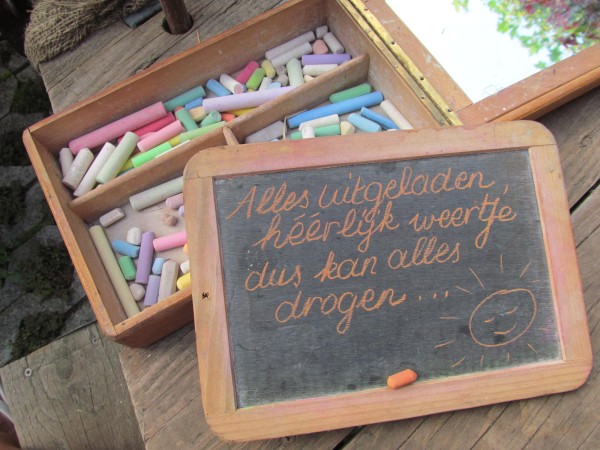 Alles uitgeladen,
héérlijk weertje
dus kan alles
drogen...